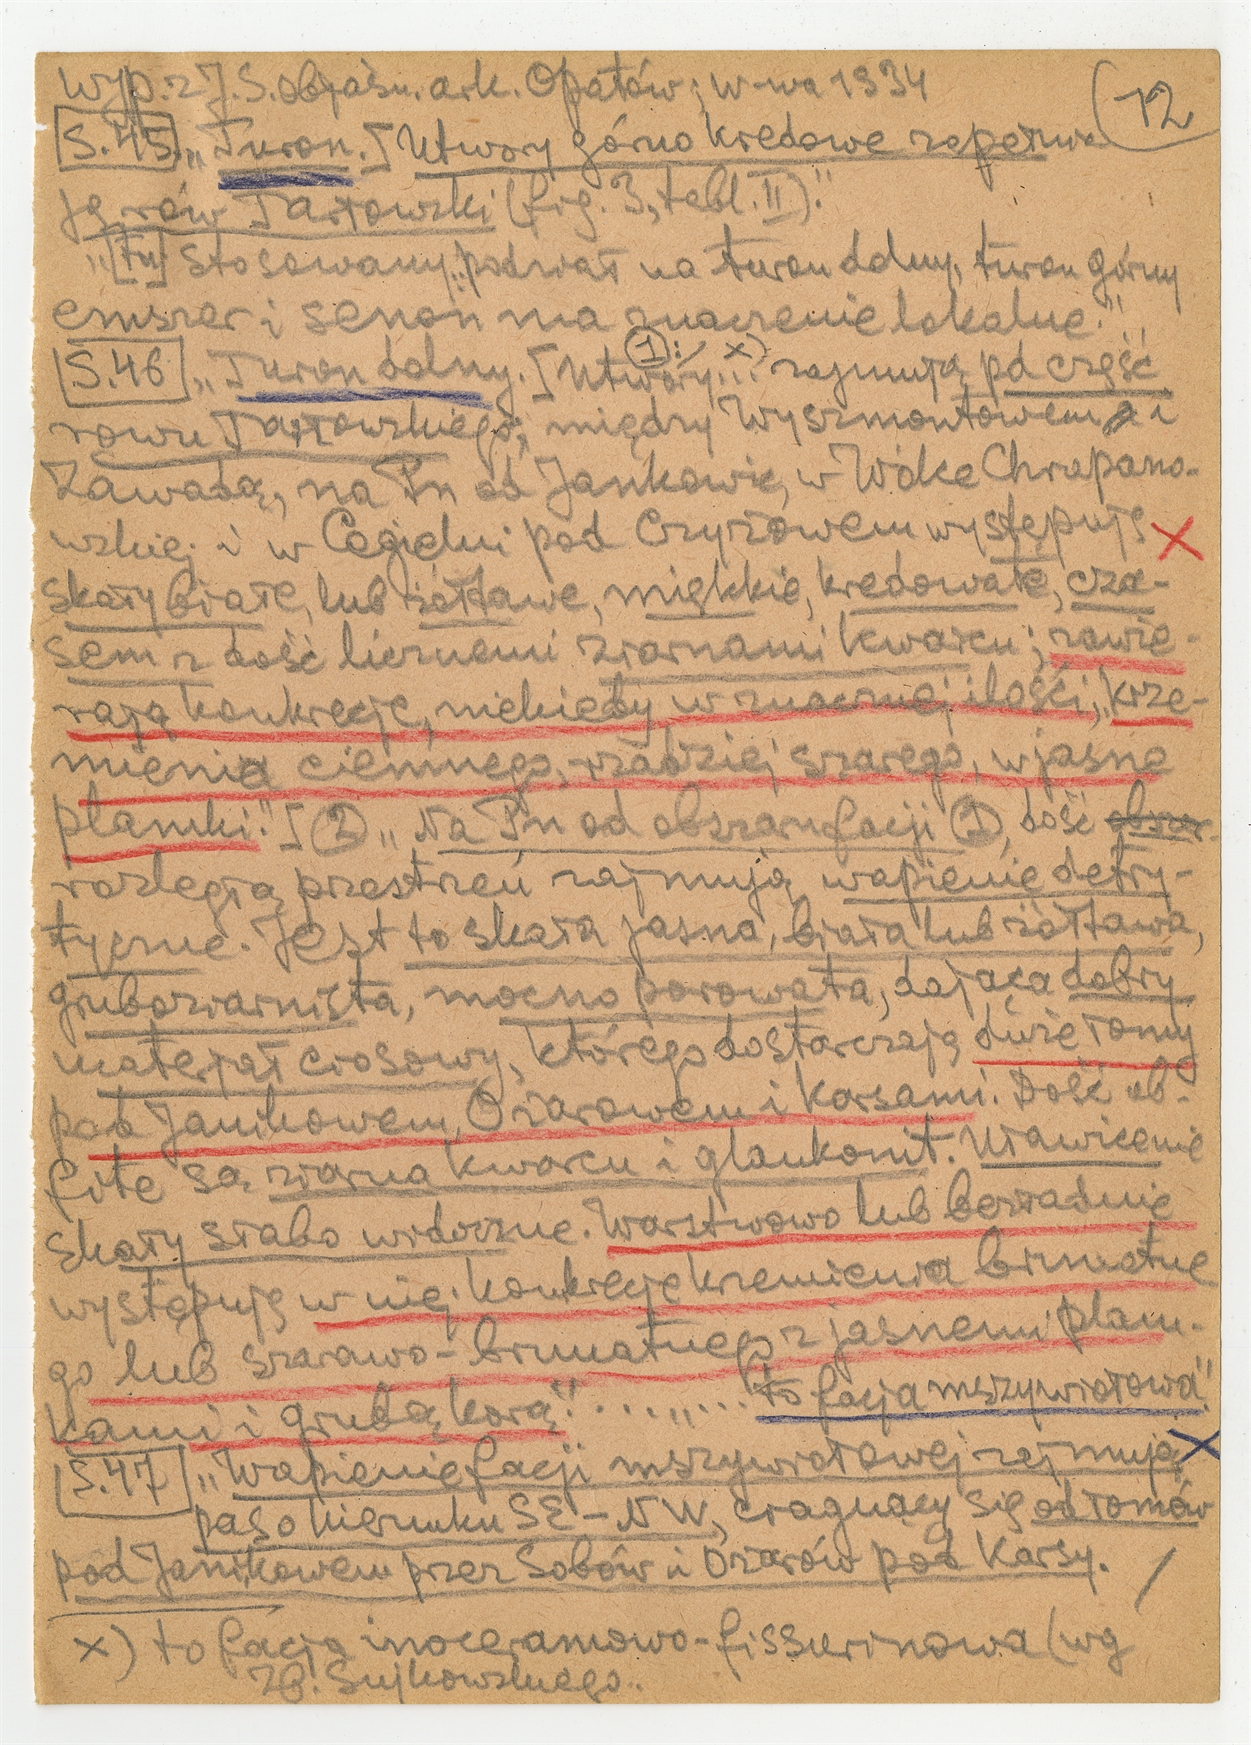 Wyp. z J. S. objaśn. ark. Opatów; W-wa 1934
(12
S.45 „Turon.[Utwory górno kredowe zapełnia-
ją rów Tarłowski (fig. 3, tabl. II)."
„[tu] Stosowany „podział na turon dolny, turon górny
emszer i senon ma znaczenie lokalne."
S.46 „Turon dolny. [Utwory... ①: x) zajmują pd część
rowu Tarłowskiego; między Wyszmontowem i
Zawadą, na Pn od Jankowic, w Wólce Chrapano-
wskiej i w Cegielni pod Czyżowem występują
skały białe, lub żółtawe, miękkie, kredowate, cza-
sem z dość licznemi ziarnami kwarcu; zawie-
rają konkrecje, niekiedy w znacznej ilości, krze-
mienia ciemnego, rzadziej szarego, w jasne
plamki."] ② „Na Pn od obszaru facji ①, dość obszer-
rozległą przestrzeń zajmują wapienie detry-
tyczne. Jest to skała jasna, biała lub żółtawa,
gruboziarnista, mocno porowata, dająca dobry
materjał ciosowy, którego dostarczają duże łomy
pod Janikowem, Ożarowem i Karsami. Dość ob-
fite są ziarna kwarcu i glaukonit. Uławicenie
skały słabo widoczne. Warstwowo lub bezładnie
występują w niej konkrecje krzemienia brunatne-
go lub szarawo-brunatnego z jasnemi plam-
kami i grubą korą." ....„... to facja mszywiołowa."
S.47 „Wapienie facji mszywiołowej zajmują
pas o kierunku SE-NW, ciągnący się od łomów
pod Janikowem przez Sobów i Ożarów pod Karsy.
x) to facja inoceramowo-fissurinowa (wg
Zb. Sujkowskiego..